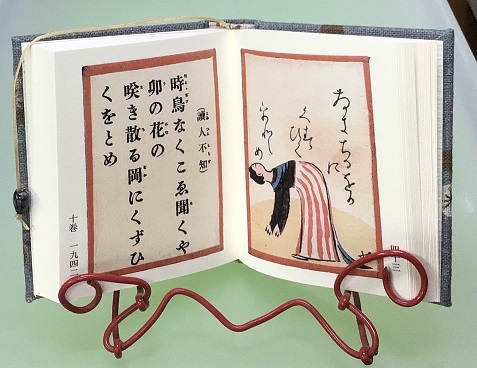 さきちるをかに
くずひく
をとめ
四十三
(讀人不知)
時鳥なくこゑ聞くや
卯の花の
咲き散る岡にくずひ
くをとめ
十卷 一九四二